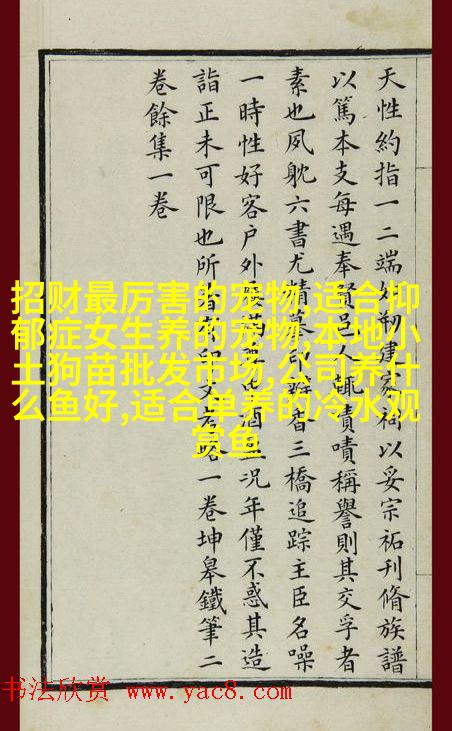 天性約指一二端如剏建家祠以妥宗祏刊脩族譜
以篤本支每遇奉賢邑人輒嘖嘖稱譽則其交孚者
素也夙躭六書尤精摹印瓣香三橋追踪主臣名噪
一時性好客户外滿酒況年僅不惑其造
詣正未可限也所著印文考略一卷坤皋鐵筆二
卷餘集一卷
招财最厉害的宠物,适合抑
郁症女生养的宠物,本地小
土狗苗批发市场,公司养什
么鱼好,适合单养的冷水观
赏鱼
书法欣赏 www.yac8.com